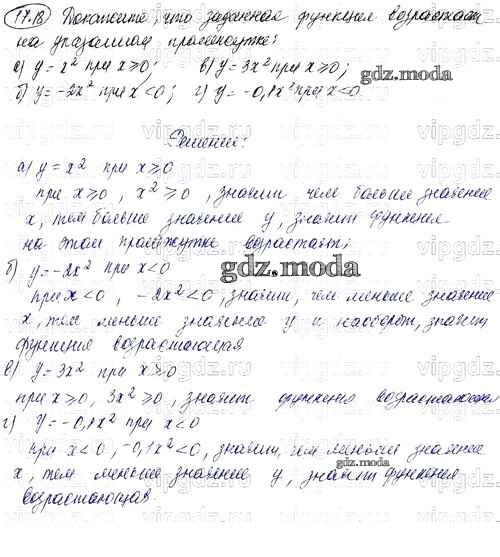 17.18 Докажите, что заданная функция возрастает
на указанном промежутке:
а) y = x² при x ≥ 0; в) y = 3x² при x ≥ 0;
б) y = -2x² при x < 0; г) y = -0,1x² при x < 0
gdz.moda
gdz.moda
Решение:
а) y = x² при x ≥ 0
при x ≥ 0, x² ≥ 0, значит чем больше значение
x, тем больше значение y, значит функция
на этом промежутке возрастает;
б) y = -2x² при x < 0
gdz.moda
при x < 0, -2x² < 0, значит, чем меньше значение
x, тем меньше значение y и наоборот, значит
функция возрастающая
в) y = 3x² при x ≥ 0
при x ≥ 0, 3x² ≥ 0, значит функция возрастающая
г) y = -0,1x² при x < 0
при x < 0, -0,1x² < 0, значит, чем меньше значение
gdz.moda
x, тем меньше значение y, значит функция
возрастающая.